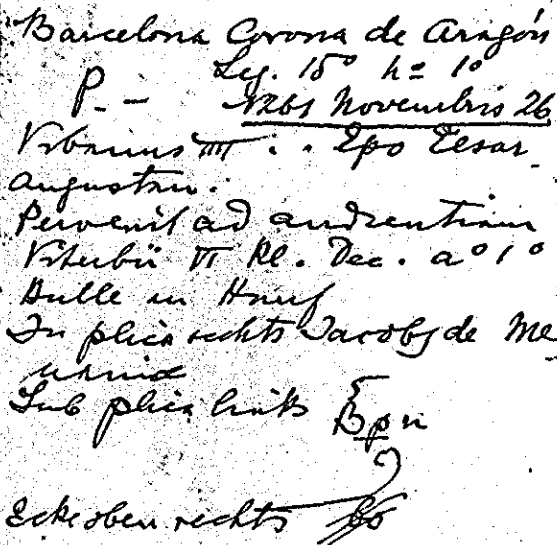 Barcelona Corona de Aragón
Leg. 15º nº 1º
P. - 1261 Novembris 26
Urbanus IIII . . Epo Cesar
augustan.
Pervenit ad audientiam
Viterbii VI Kl. Dec. aº 1º
Bulle an Hanf
In plica rechts Jacobs de Me
Sub plica links Bpn
Ecke oben rechts